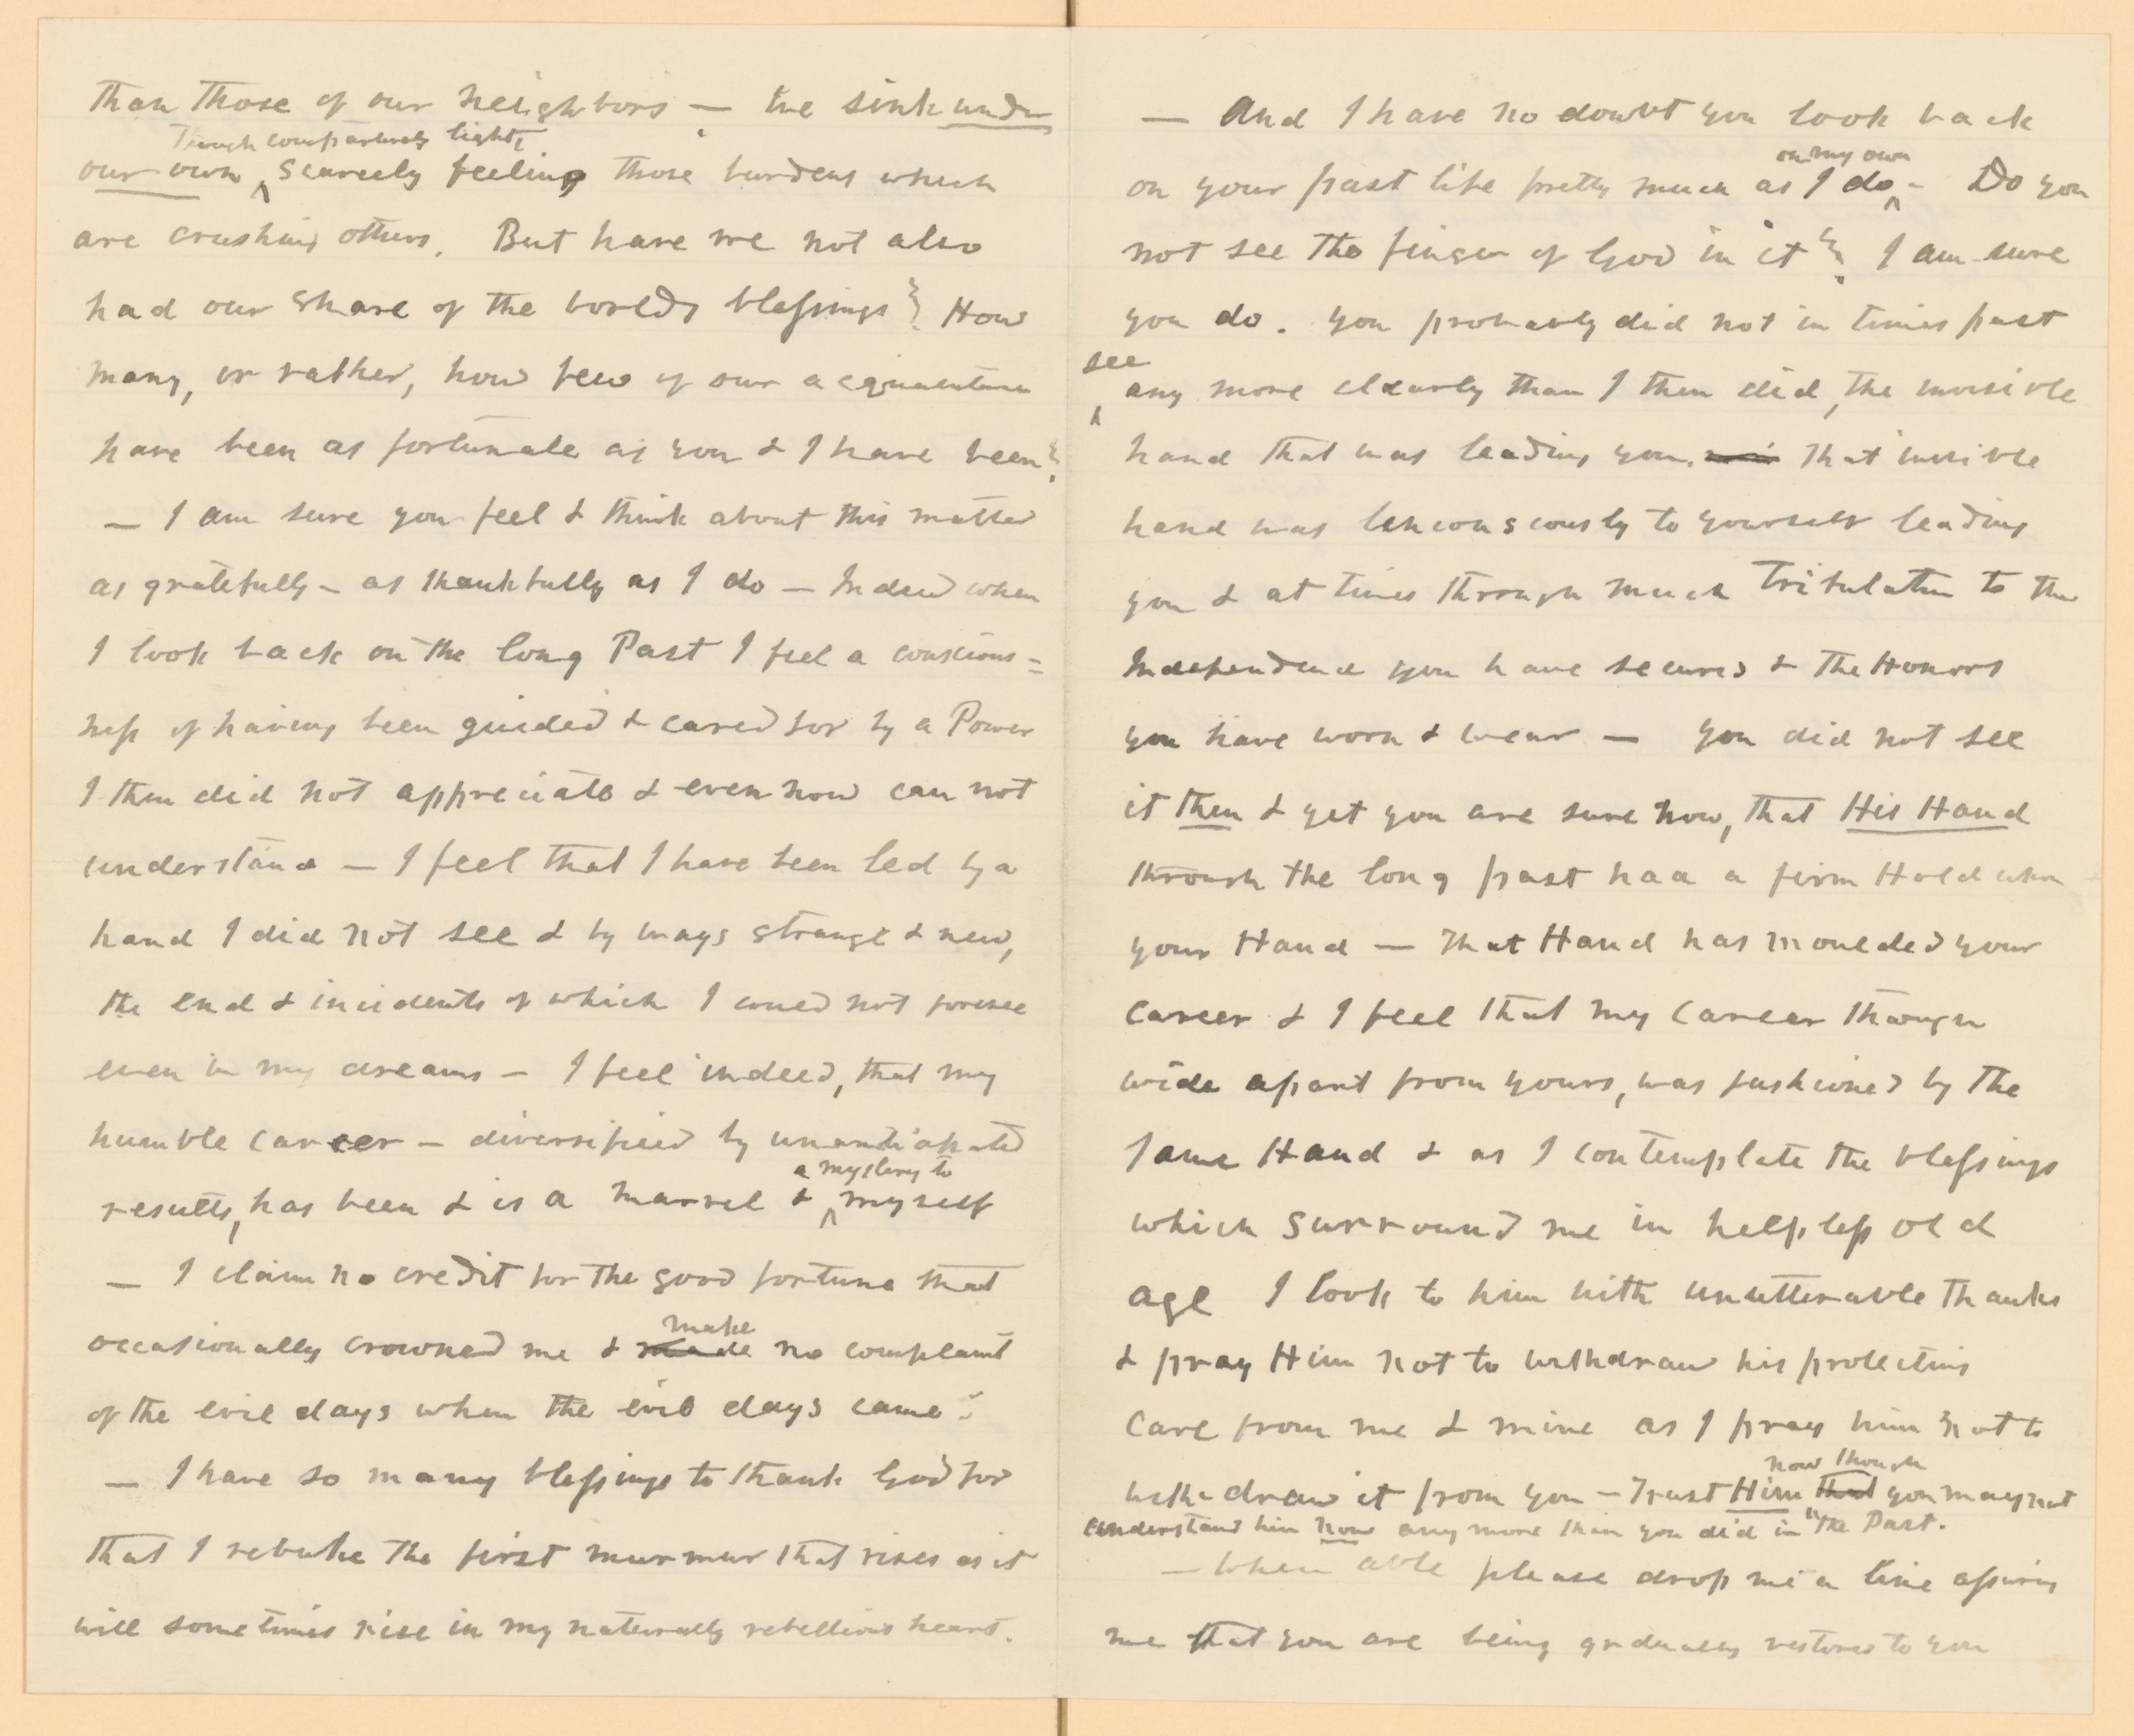 than those of our neighbors — we sink under
though comparatively light,
our own ^ scarcely feeling those burdens which
are crushing others. But have we not also
had our share of the worlds blessings? How
many, or rather, how few of our acquaintance
have been as fortunate as you & I have been?
— I am sure you feel & think about this matter
as gratefully – as thankfully as I do – Indeed when
I look back on the long Past I feel a conscious=
ness of having been guided & cared for by a Power
I then did not appreciate & even now can not
understand — I feel that I have been led by a
hand I did not see & by ways strange & new,
the end & incidents of which I could not foresee
even in my dreams – I feel indeed, that my
humble career – diversified by unanticipated
a mystery to
results, has been & is a marvel & ^ myself
— I claim no credit for the good fortune that
make
occasionally crowned me & made no complaint
of the evil days when the evil days came.
— I have so many blessings to thank God for
that I rebuke the first murmur that rises as it
will sometimes rise in my naturally rebellious heart.
— And I have no doubt you look back
on my own
on your past life pretty much as I do ^ – Do you
not see the finger of God in it? I am sure
you do. You probably did not in times past
see
^ any more clearly than I then did, the invisible
hand that was leading you. That invisible
hand was unconsciously to yourself leading
you & at times through much tribulation to the
Independence you have secured & the Honors
you have worn & wear — You did not see
it then & yet you are sure now, that His Hand
through the long past had a firm Hold upon
your Hand — That Hand has moulded your
career & I feel that my career though
wide apart from yours, was fashioned by the
same Hand & as I contemplate the blessings
which surround me in helpless old
age I look to him with unutterable thanks
& pray Him not to withdraw his protecting
care from me & mine as I pray him not to
now though
withdraw it from you – Trust Him that you may not
understand him now any more than you did in "the Past.
— When able please drop me a line assuring
me that you are being gradually restored to you